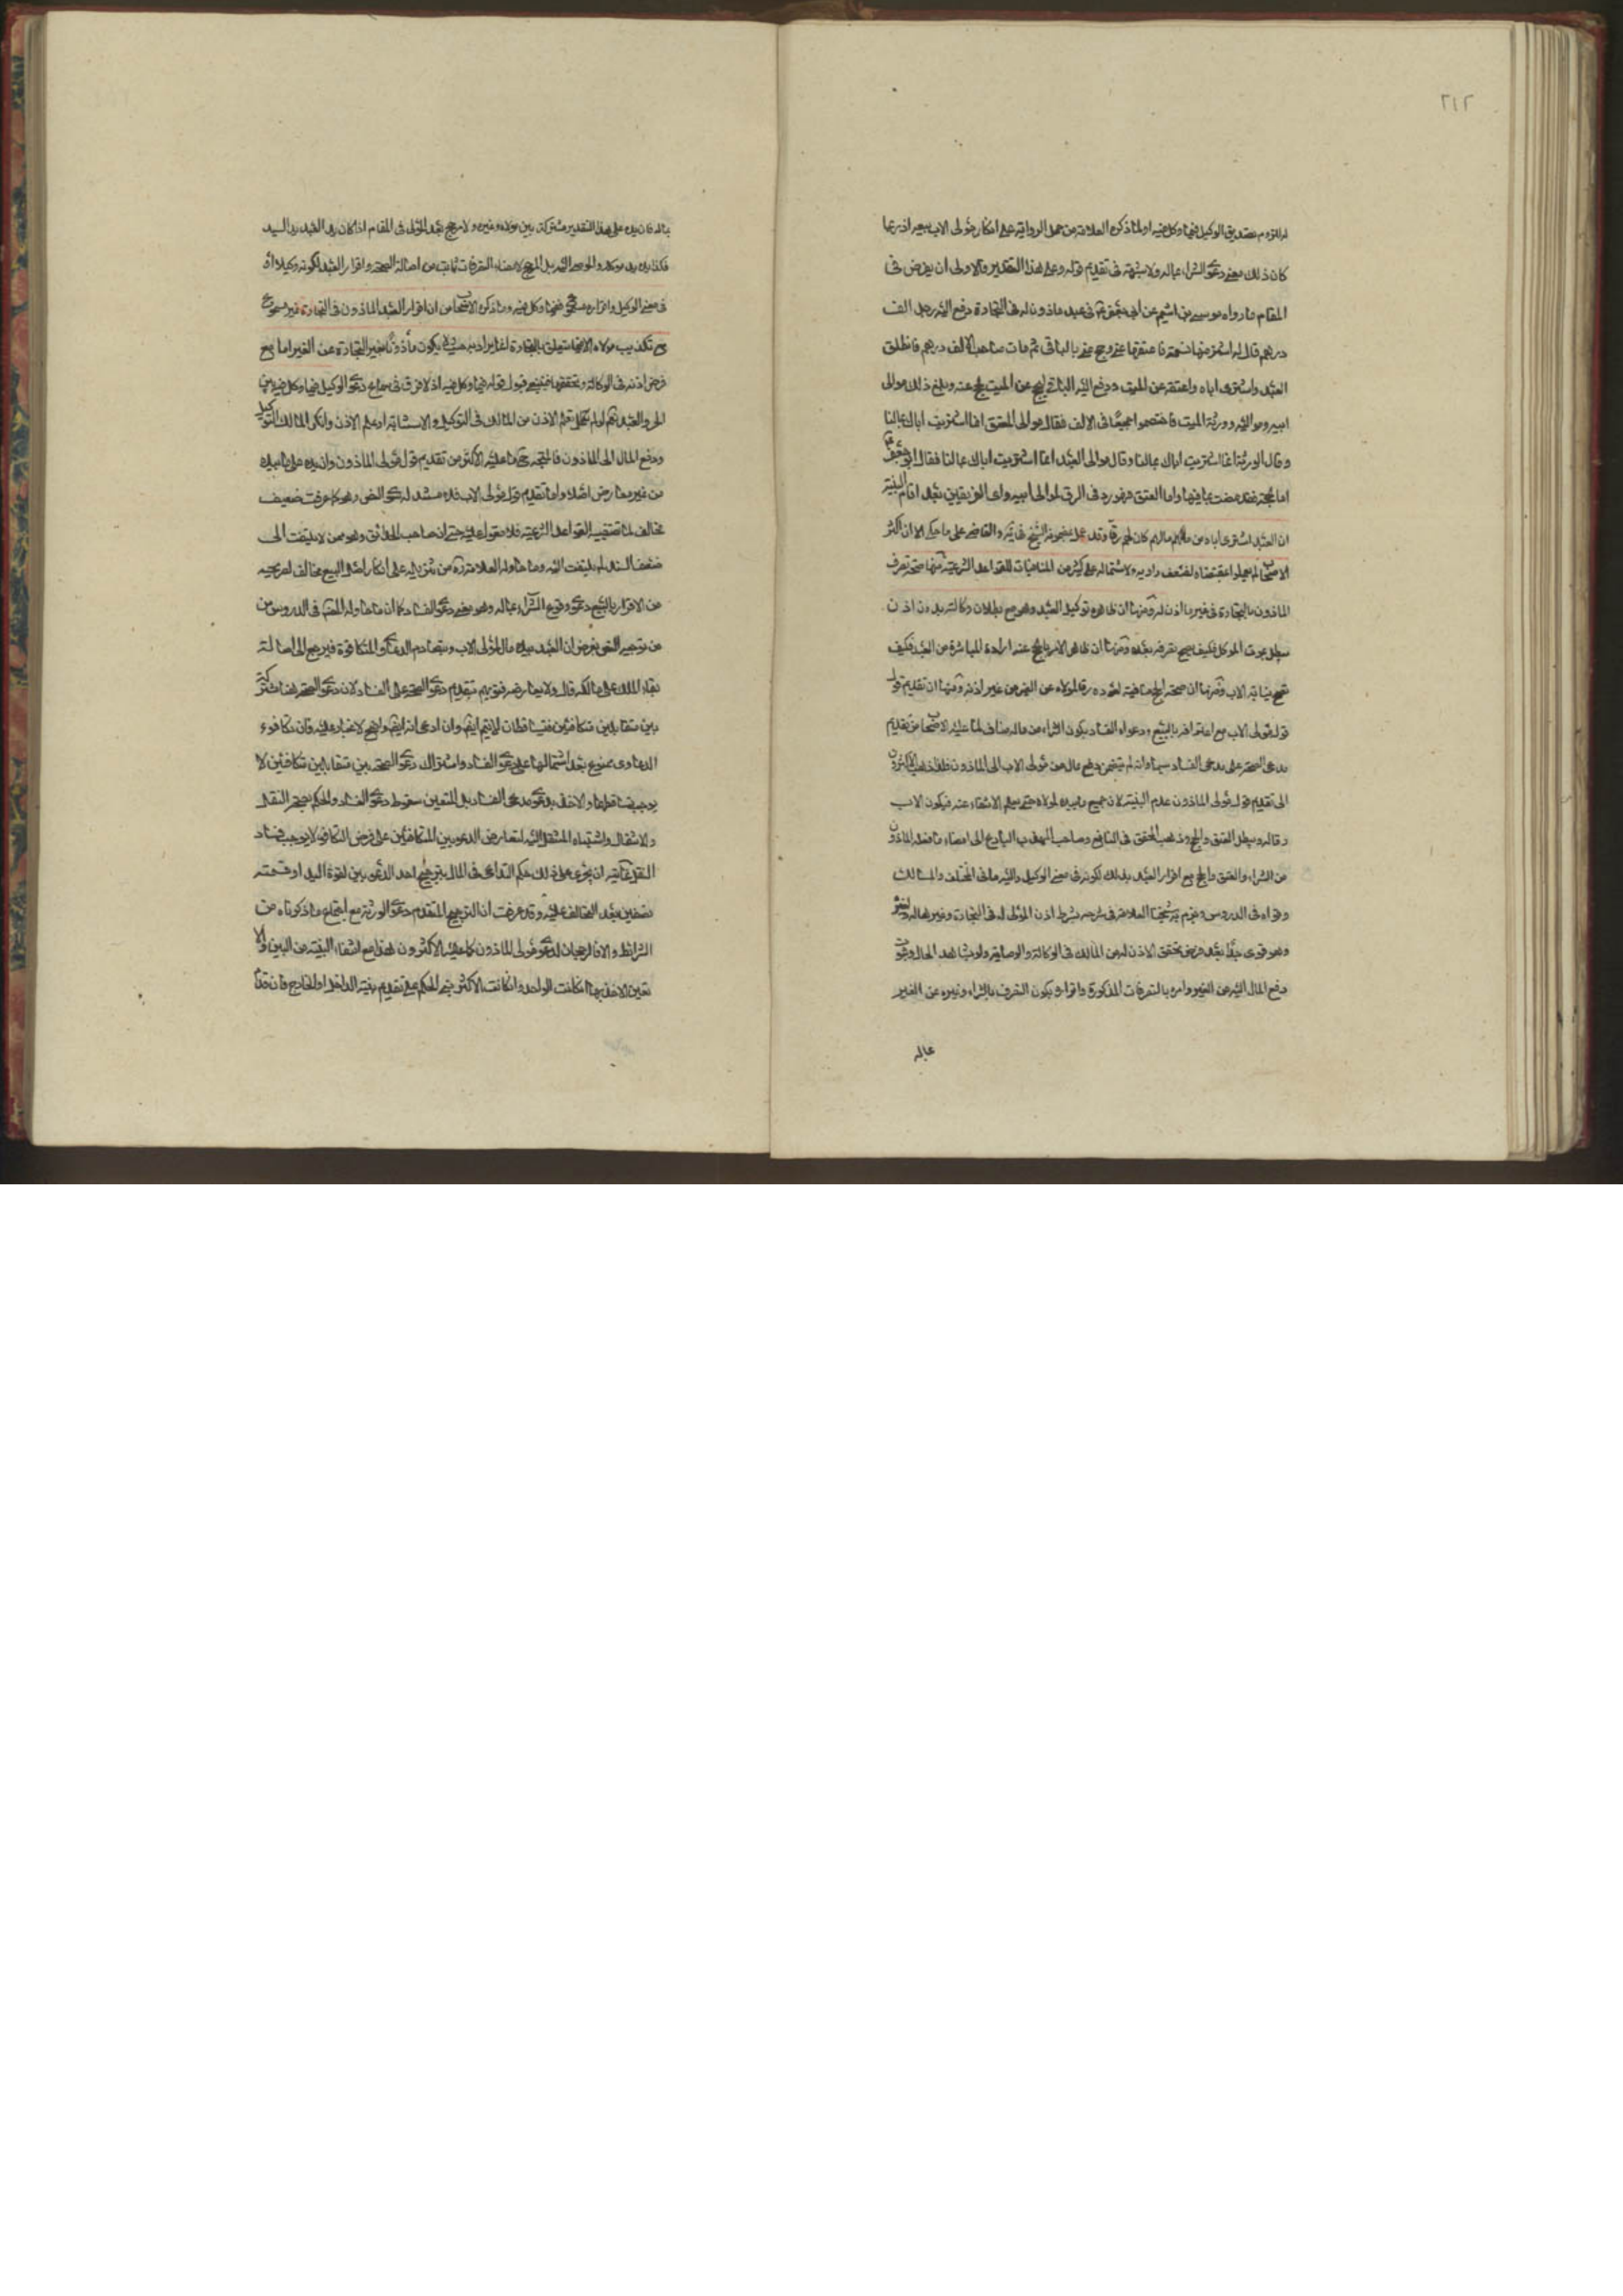 ٢١٢
له للزوم تصديق الوكيل فيما وكل فيه او لما ذكره العلامة من حمل الرواية على انكار مولى الاب لبيعه اذ ربما
كان ذلك معنى دعوى الشراء بماله ولا شبهة في تقديم قوله وعلى هذا التقدير والاولى ان يفرض في
المقام ما رواه موسى بن اشيم عن ابي جعفر ع في عبد ماذون له في التجارة دفع اليه رجل الف
درهم قال له اشتر منها نسمة فاعتقها عني وحج عني بالباقي ثم مات صاحب الالف درهم فانطلق
العبد واشترى اباه واعتقه عن الميت ودفع اليه الباقي ليحج عن الميت فحج عنه وبلغ ذلك موالى
ابيه ومواليه وورثة الميت فاختصموا جميعًا في الالف فقال موالى المعتق انما اشتريت اباك بمالنا
وقال الورثة انما اشتريت اباك بمالنا وقال موالى العبد انما اشتريت اباك بمالنا فقال ابو جعفر ع
اما الحجة فقد مضت بما فيها واما المعتق فهو رد في الرق لموالى ابيه واى الفريقين بعد اقام البينة
ان العبد اشترى اباه من مالهم كان لهم رقا وقد عمل بمضمونه الشيخ في يه والقاضي على ما حكى الا ان اكثر
الاصحاب لم يعملوا بمقتضاه لضعف راويه ولاشتماله على كثير من المنافيات للقواعد الشرعية منها صحة تصرف
الماذون بالتجارة في غير ما اذن له ومنها ان ظاهره توكيل العبد وهو مع بطلان وكالته بدون اذن
يبطل بموت الموكل فكيف يصح تصرفه بعده ومنها ان ظاهر الامر بالحج عنه ارادة المباشرة من العبد فكيف
تصح نيابة الاب ومنها ان صحة الحج منافية لعوده رقا لمولاه عن غير اذنه ومنها ان تقديم
قول مولى الاب مع اعترافه بالبيع ودعواه الفساد بكون الشراء من ماله مناف لما عليه الاصحاب من تقديم
مدعى الصحة على مدعى الفساد سيما وانه لم يتضمن دفع مال من مولى الاب الى الماذون فلذا ذهب الاكثرون
الى تقديم قول مولى الماذون عدم البينة لان جميع ما بيده لمولاه حتى يعلم الانتفاء عنه فيكون الاب
رقا له ويبطل العتق والحج وذهب المحقق في النافع وصاحب المهذب البارع الى امضاء ما فعله الماذون
من الشراء والعتق والحج مع اقرار العبد بذلك لكونه في معنى الوكيل واليه مال في المختلف والمسالك
وقواه في الدروس وجزم به شيخنا العلامة في شرحه بشرط اذن المولى له في التجارات وغيرها له ولغيره
وهو قوى جدًا بعد فرض تحقق الاذن له من المالك في الوكالة والوصاية ولو بشاهد الحال وثبوت
دفع المال اليه من الغير وامره بالتصرفات المذكورة واقراره بكون التصرف بالشراء وغيره عن الغير
بماله
بماله فان يده على هذا التقدير مشتركة بين مولاه وغيره ولا مرجح بعد المولى في المقام اذا كان يد العبد يد السيد
فكذا يده يد موكله والموصى اليه بل المرجح لامضاء التصرفات ثابت من اصالة الصحة واقرار العبد لكونه وكيلا او
في معنى الوكيل واقراره مسموع فيما وكل فيه وما ذكره الاصحاب من ان اقرار العبد الماذون في التجارة غير مسموع
مع تكذيب مولاه الا فيما يتعلق بالتجارة انما يراد به حيث لا يكون ماذونًا بغير التجارة عن الغير اما مع
فرض اذنه في الوكالة وتحققها فينبغي قبول قوله فيما وكل فيه اذ لا فرق في سماع دعوى الوكيل فيما وكل فيه بين
الحر والعبد نعم لو لم نعلم الاذن من المالك في التوكيل والاستنابة او علم الاذن وانكر المالك التوكيل
ودفع المال الى الماذون فالمتجه ح ما عليه الاكثر من تقديم قول مولى الماذون وان يده على ما بيده
من غير معارض اصلا واما تقديم قول مولى الاب فلا مستند له سوى النص وهو كما عرفت ضعيف
مخالف لما تقتضيه القواعد الشرعية فلا معول عليه حتى ان صاحب الحدائق وهو ممن لا يلتفت الى
ضعف السند لم يلتفت اليه وما حاوله العلامة ره من تنزيله على انكار اصل البيع مخالف لصريحه
من الاقرار بالبيع دعوى وقوع الشراء بماله وهو معنى دعوى الفساد كما ان ما حاوله المص في الدروس من
من توجيه النص بفرض ان العبد بيده مال المولى الاب وبتصادم الدعاوى المتكافئة فيرجع الى اصالة
بقاء الملك على مالكه قال ولا يعارض فتويهم بتقديم دعوى الصحة على الفساد لان دعوى الصحة هنا مشتركة
بين متقابلين متكافئين فتساقطتا لا يتم ايض وان ادعى انه ايض واضح لا غبار عليه فان تكافوء
الدعاوى ممنوع بعد اشتمالها على دعوى الفساد واشتراك دعوى الصحة بين متقابلين متكافئين لا
يوجب تساقطها والاخذ بدعوى مدعى الفساد بل المتعين سقوط دعوى الفساد والحكم بصحة النقل
والانتقال واشتباه المنتقل اليه لتعارض الدعويين المتكافئين على فرض التكافوء لا يوجب فساد
العقد غايته ان يجرى على ذلك حكم التداعى في المال بترجيح احد الدعويين لقوة اليد او قسمته
نصفين بعد التحالف عليه وقد عرفت ان الترجيح المتقدم دعوى الورثة مع اجتماع ما ذكرناه من
الشرائط والا فالرجحان لدعوى مولى الماذون كما عليه الاكثرون هذا مع انتفاء البينة من البين والا
تعين الاخذ بها ان كانت لواحد وان كانت لاكثر بنى الحكم على تقديم بينة الداخل او الخارج فان قدمنا